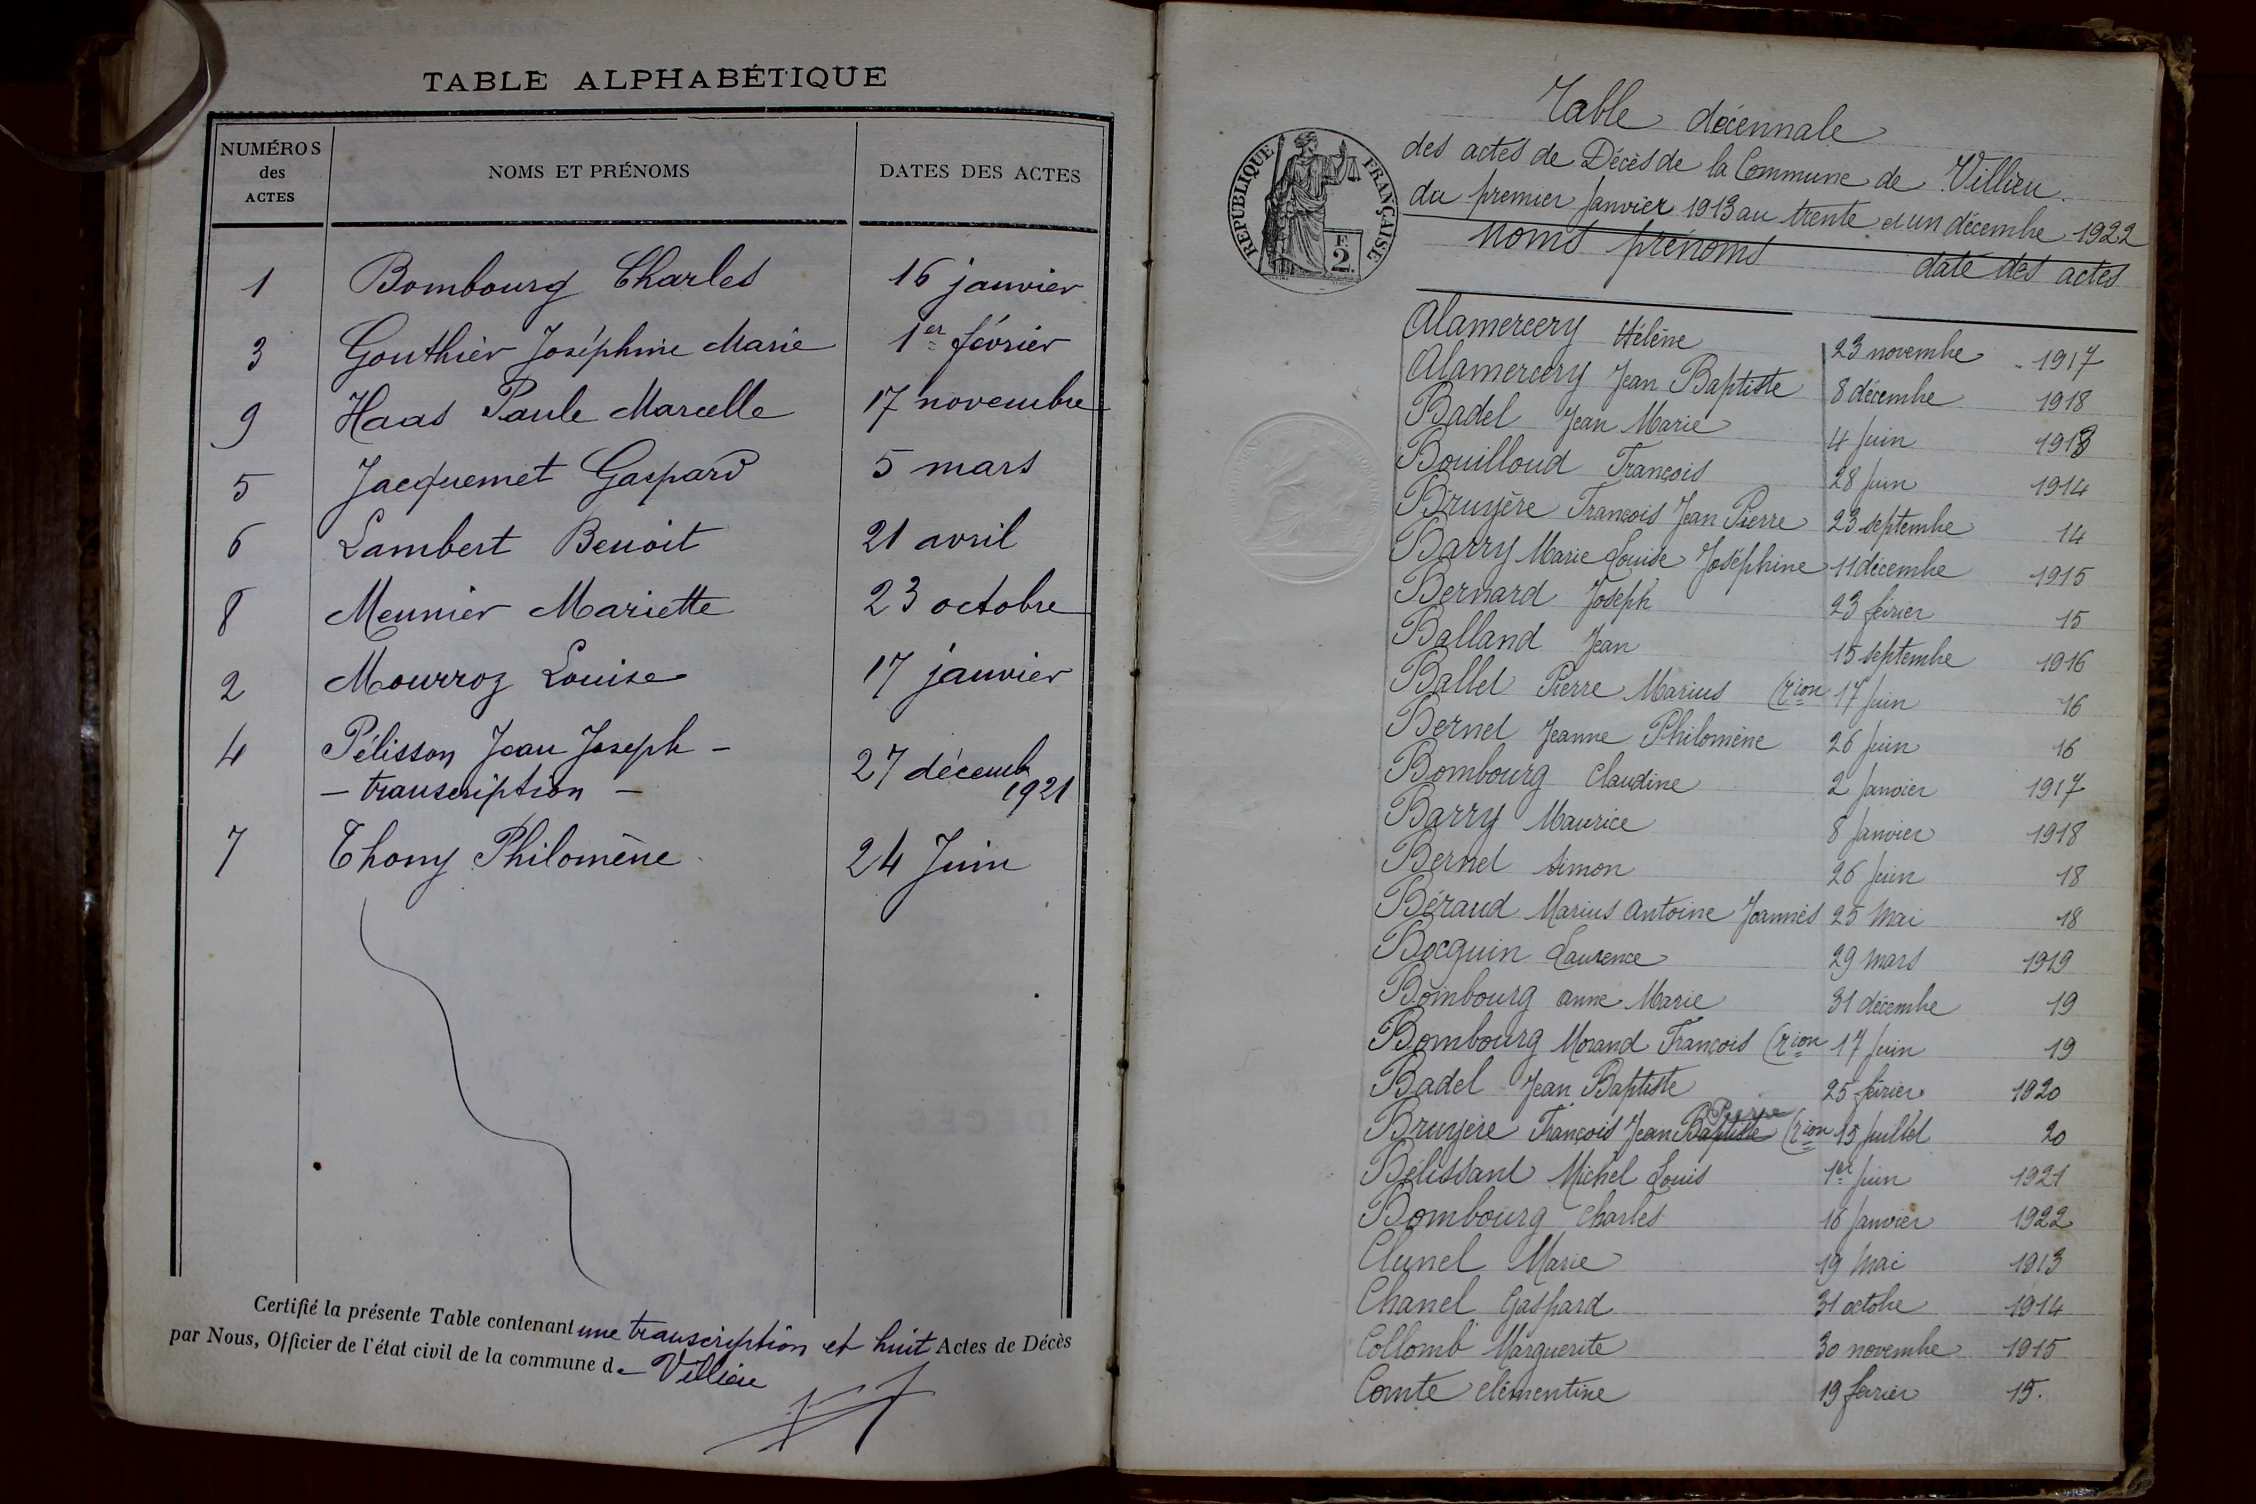 TABLE ALPHABÉTIQUE
NUMÉROS des ACTES NOMS ET PRÉNOMS DATES DES ACTES
1 Bombourg Charles 16 janvier
3 Gouthier Joséphine Marie 1er février
9 Haas Paule Marcelle 17 novembre
5 Jacquemet Gaspard 5 mars
6 Lambert Benoit 21 avril
8 Meunier Mariette 23 octobre
2 Mourroz Louise 17 janvier
4 Pélisson Jean Joseph -
- transcription - 27 décemb 1921
7 Thomy Philomène 24 Juin
Certifié la présente Table contenant une transcription et huit Actes de Décès
par Nous, Officier de l'état civil de la commune de Villieu
Table décennale
des actes de Décès de la Commune de Villieu.
du premier Janvier 1913 au trente et un décembre 1922
RÉPUBLIQUE FRANÇAISE
F. 2.
Noms prénoms date des actes
Alamercery Hélène 23 novembre 1917
Alamercery Jean Baptiste 8 décembre 1918
Badel Jean Marie 4 Juin 1913
Bouilloud François 28 Juin 1914
Bruyère François Jean Pierre 23 septembre 14
Barry Marie Louise Joséphine 11 décembre 1915
Bernard Joseph 23 février 15
Balland Jean 15 septembre 1916
Ballet Pierre Marius (Tion 17 Juin 16
Bernet Jeanne Philomène 26 Juin 16
Bombourg Claudine 2 Janvier 1917
Barry Maurice 8 Janvier 1918
Bernet Simon 26 Juin 18
Béraud Marius Antoine Joannès 25 Mai 18
Bocquin Laurence 29 Mars 1919
Bombourg Anne Marie 31 décembre 19
Bombourg Morand François (Tion 17 Juin 19
Badel Jean Baptiste 25 février 1920
Bruyère François Jean Baptiste Pierre (Tion 15 Juillet 20
Bélissant Michel Louis 1er Juin 1921
Bombourg Charles 16 Janvier 1922
Clunel Marie 19 Mai 1913
Chanel Gaspard 31 octobre 1914
Collomb Marguerite 30 novembre 1915
Comte Clémentine 19 février 15.